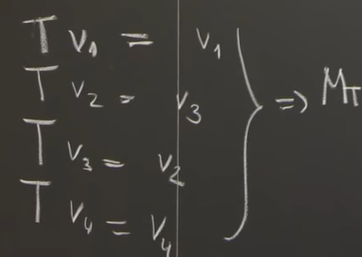 T v₁ = v₁
T v₂ = v₃
T v₃ = v₂
T v₄ = v₄
} ⇒ M_T